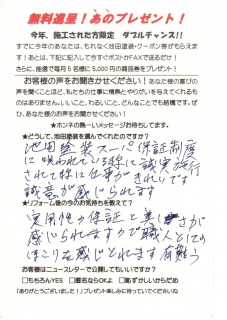 無料進呈！あのプレゼント！
今年、施工された方限定　ダブルチャンス!!
すでに今年のあなたは、もれなく池田塗装・クーポン券がもらえま
す！あとは、下記が記入して今すぐポストかFAXで送るだけ！
さらに、抽選で毎月5名様に5,000円の商品券をプレゼント！
お客様の声をお聞きかせください！あなた様の喜びの
声を聞くことほど、私たちの仕事に情熱とやりがいを与えてくれるも
のはありません。いいこと、わるいこと、どんなことでも結構です。ぜ
ひ、あなた様の声をお聞かせください！
★ホンネの熱～いメッセージお待ちしてます。
★どうして、池田塗装を選んでくれたのですか？
池田塗装スーパー保証制度
に
様に誠実施行
されて特に仕事がきれいです
誠意が感じられます
★リフォーム後の今のお気持ちを教えて？
実用性の保証と美しさが
感じられますので職人としての
ほこりな感じとれます有難う
お客様はニュースレターで公開してもいいですか？
□もちろんYES　□匿名ならOKよ　□恥ずかしいからだめ
「ありがとうございました！」プレゼント楽しみに待っていてくださいね